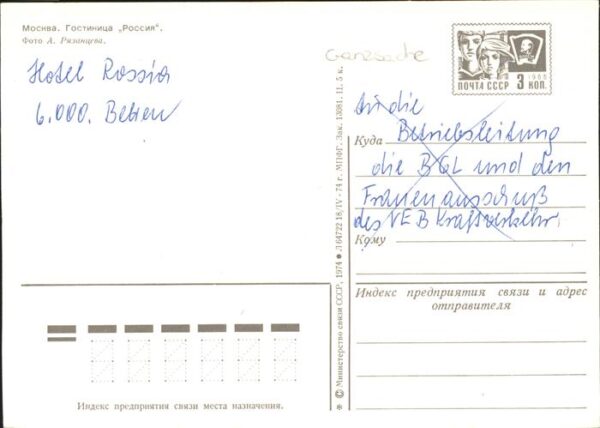 Москва. Гостиница „Россия“.
Фото А. Рязанцева.
Hotel Rossia
6.000. Betten
Ganzsache
ПОЧТА СССР 3 КОП.
1966
An die
Куда Betriebsleitung
die BGL und den
Frauenausschuß
des VEB Kraftverkehr.
Кому
Индекс предприятия связи и адрес
отправителя
Индекс предприятия связи места назначения.
* © Министерство связи СССР, 1974 ● Л 64722 18/IV - 74 г. МПФГ. Зак. 13081. П. 5 к.